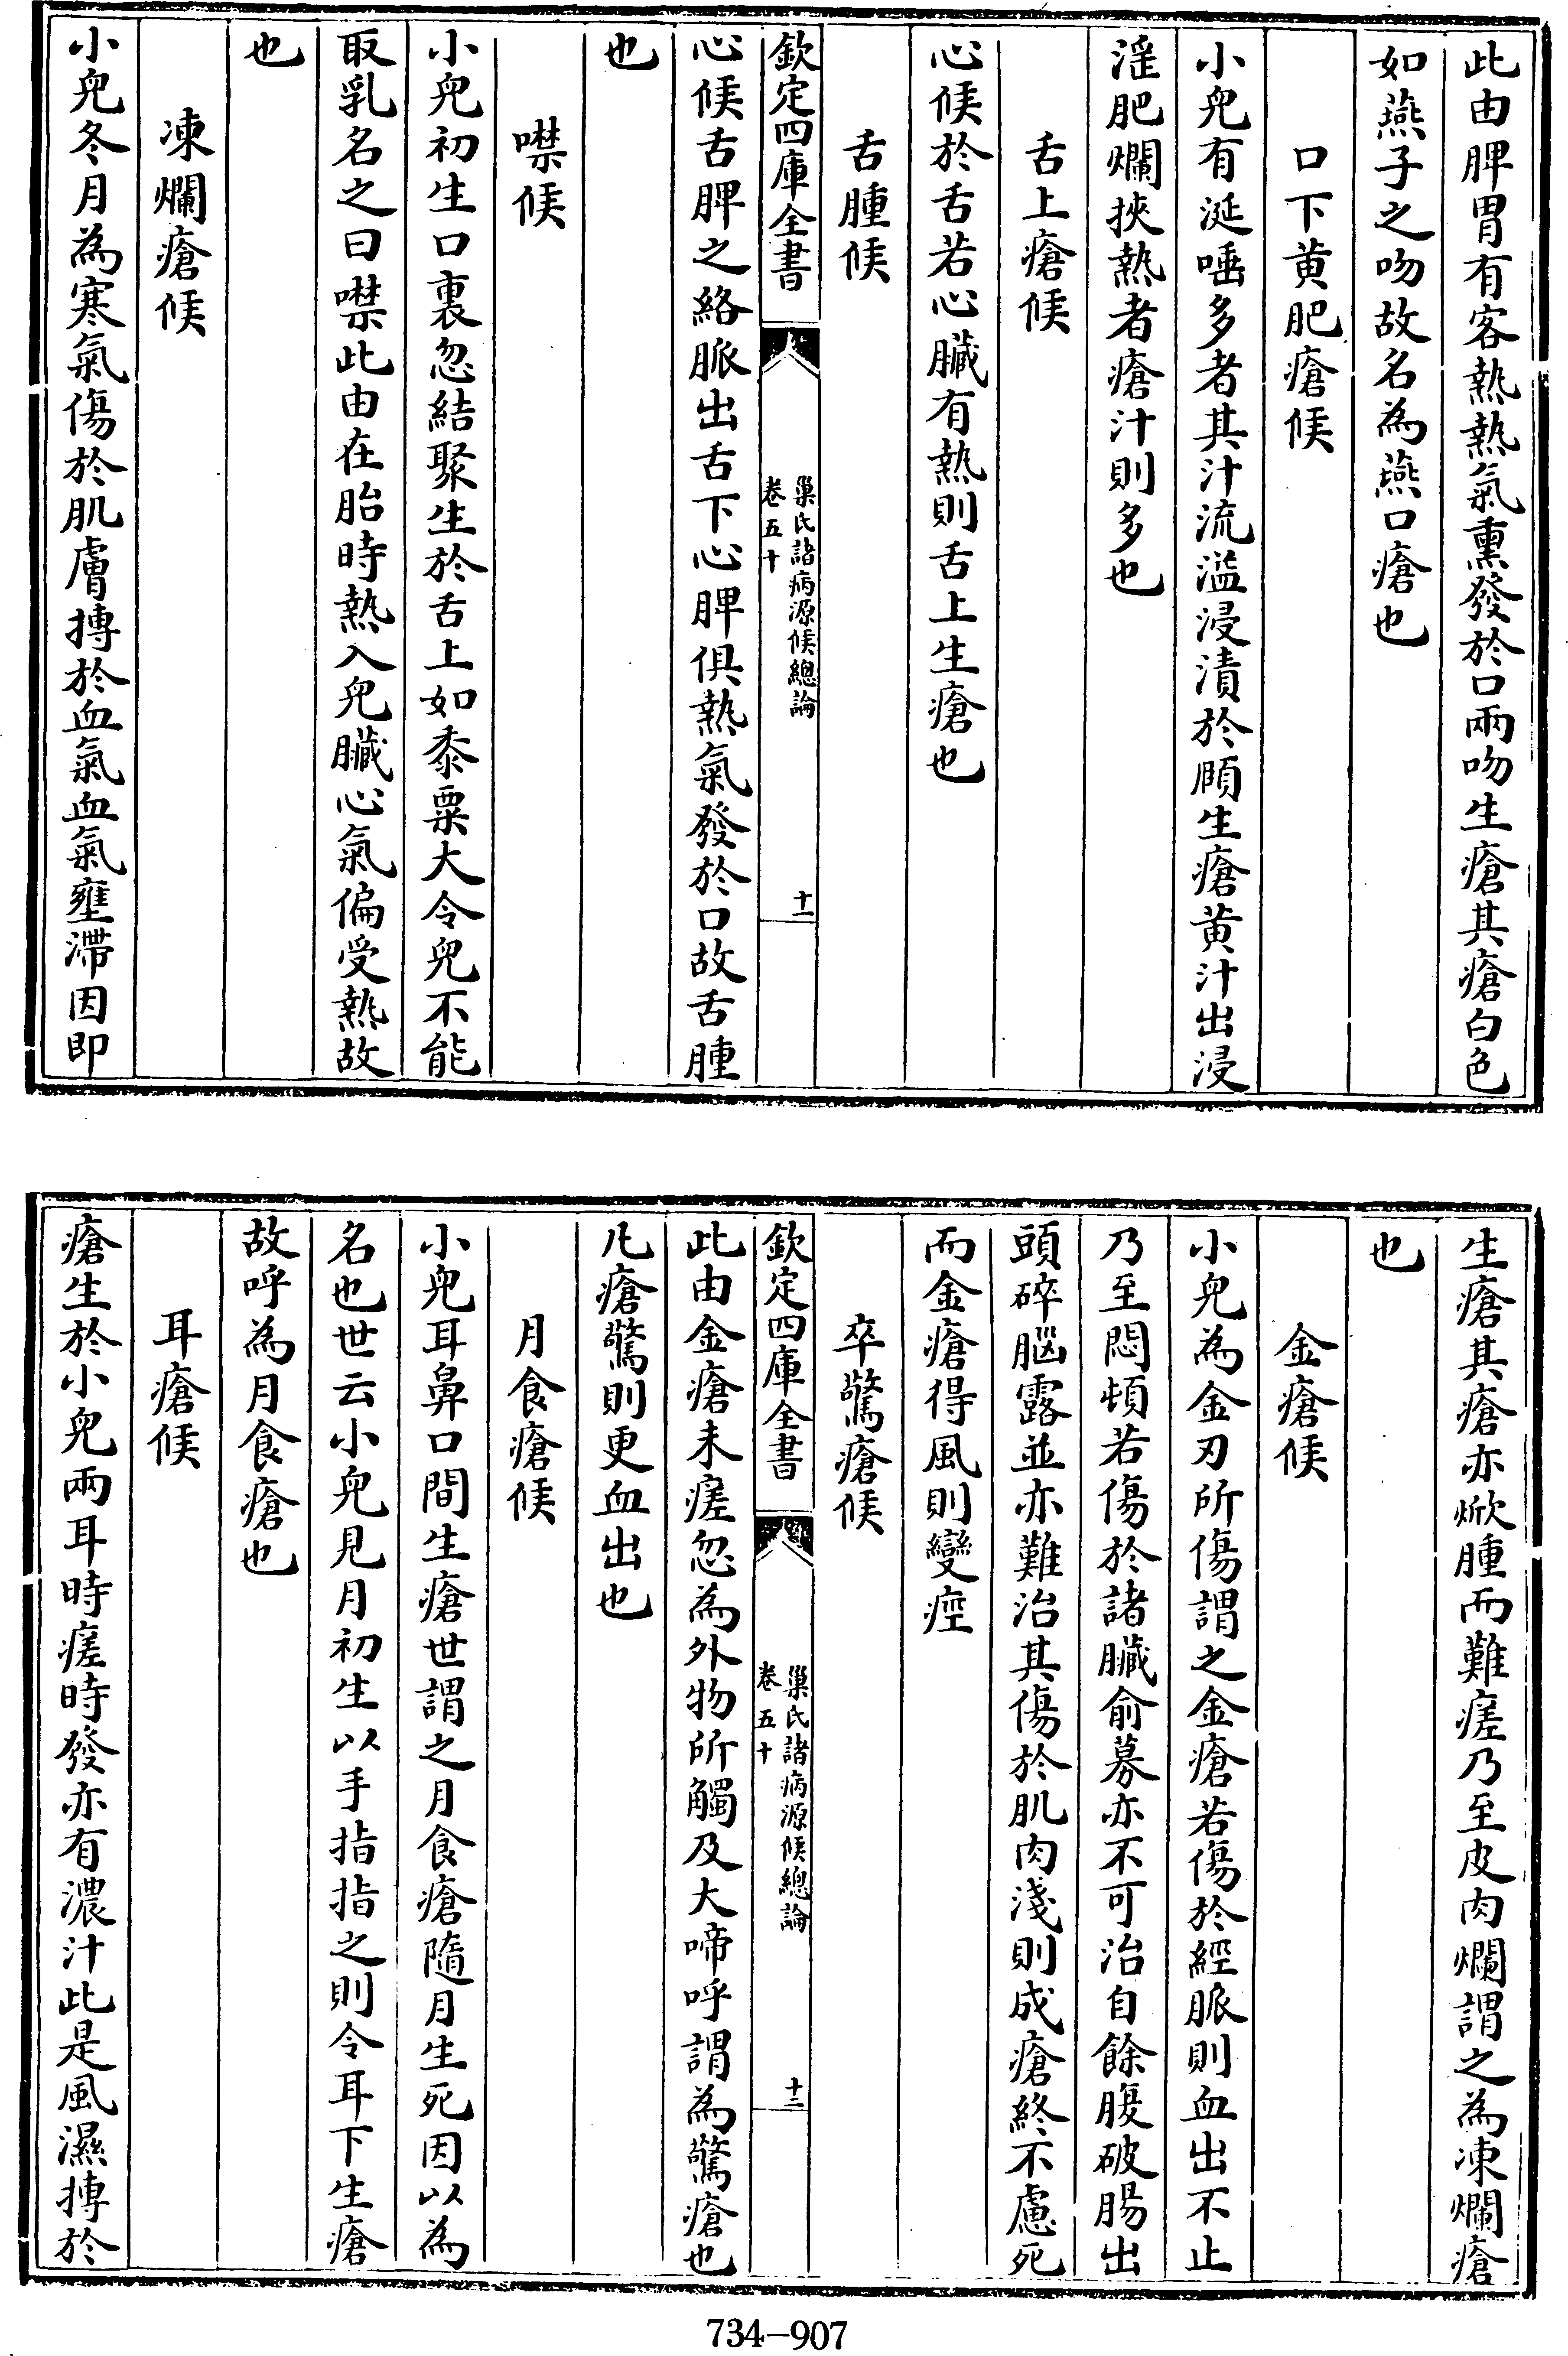 此由脾胃有客熱熱氣熏發於口兩吻生瘡其瘡白色
如燕子之吻故名為燕口瘡也
口下黄肥瘡候
小兒有涎唾多者其汁流溢浸漬於頤生瘡黄汁出浸
淫肥爛挾熱者瘡汁則多也
舌上瘡候
心候於舌若心臟有熱則舌上生瘡也
舌腫候
欽定四庫全書
巢氏諸病源候總論
卷五十
十一
心候舌脾之絡脈出舌下心脾俱熱氣發於口故舌腫
也
噤候
小兒初生口裏忽結聚生於舌上如黍粟大令兒不能
取乳名之曰噤此由在胎時熱入兒臟心氣偏受熱故
也
凍爛瘡候
小兒冬月為寒氣傷於肌膚搏於血氣血氣壅滯因即
生瘡其瘡亦焮腫而難瘥乃至皮肉爛謂之為凍爛瘡
也
金瘡候
小兒為金刃所傷謂之金瘡若傷於經脈則血出不止
乃至悶頓若傷於諸臟俞募亦不可治自餘腹破腸出
頭碎腦露並亦難治其傷於肌肉淺則成瘡終不慮死
而金瘡得風則變痙
卒驚瘡候
欽定四庫全書
巢氏諸病源候總論
卷五十
十二
此由金瘡未瘥忽為外物所觸及大啼呼謂為驚瘡也
凡瘡驚則更血出也
月食瘡候
小兒耳鼻口間生瘡世謂之月食瘡隨月生死因以為
名也世云小兒見月初生以手指指之則令耳下生瘡
故呼為月食瘡也
耳瘡候
瘡生於小兒兩耳時瘥時發亦有濃汁此是風濕搏於
734-907